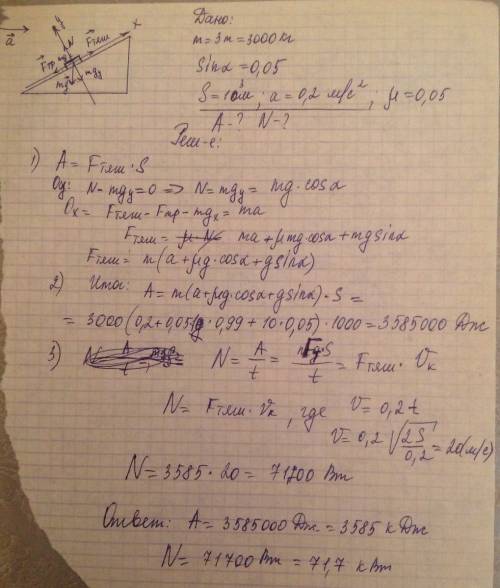 y
x
a⃗
N
Fтяш
Fтр
mgx
mgy
mg
Дано:
m = 3т = 3000 кг
sinα = 0,05
S = 10³м; a = 0,2 м/с²; μ = 0,05
A-? N-?
Реш-е:
1) A = Fтяш · S
Oy: N - mgy = 0 => N = mgy = mg·cosα
Ox = Fтяш - Fтр - mgx = ma
Fтяш = ma + μmg cosα + mg sinα
Fтяш = m(a + μg·cosα + g sinα)
2) Итог: A = m(a + μg·cosα + g sinα)·S =
= 3000(0,2 + 0,05·0,99 + 10·0,05)·1000 = 3585000 Дж
3) N = A/t = F·S/t = Fтяш · Vк
N = Fтяш · Vк, где V = 0,2t
V = 0,2 √(2S/0,2) = 20 (м/с)
N = 3585 · 20 = 71700 Вт
Ответ: A = 3585000 Дж = 3585 кДж
N = 71700 Вт = 71,7 кВт